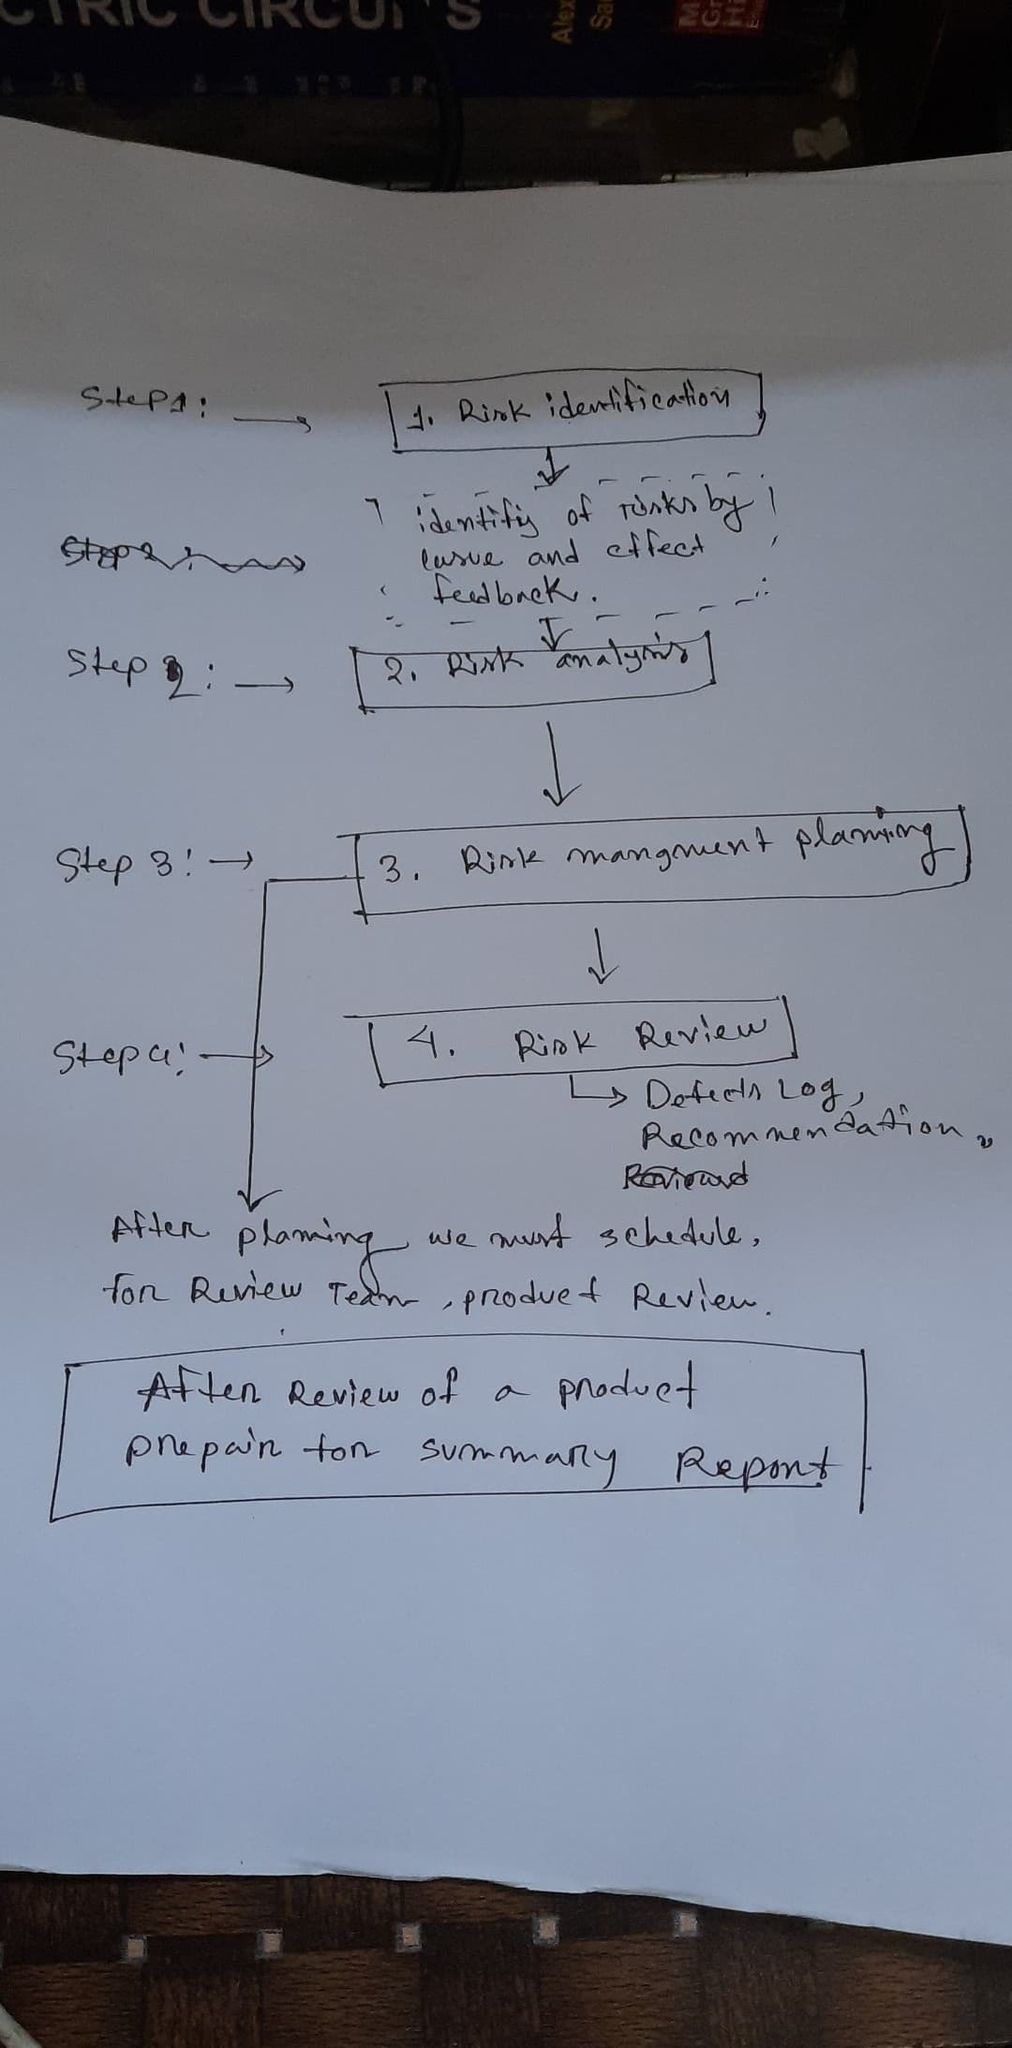 CTRIC CIRCUITS
Alex
Sa
M
Gr
Hi
Step 1:
1. Risk identification
identify of risks by
casue and effect
feedback.
Step 2:
2. Risk analysis
Step 3:
3. Risk mangment planning
Step 4:
4. Risk Review
Defects Log,
Recommendation,
After planning we must schedule,
for Review Team, product Review.
After Review of a product
prepair for summary Report